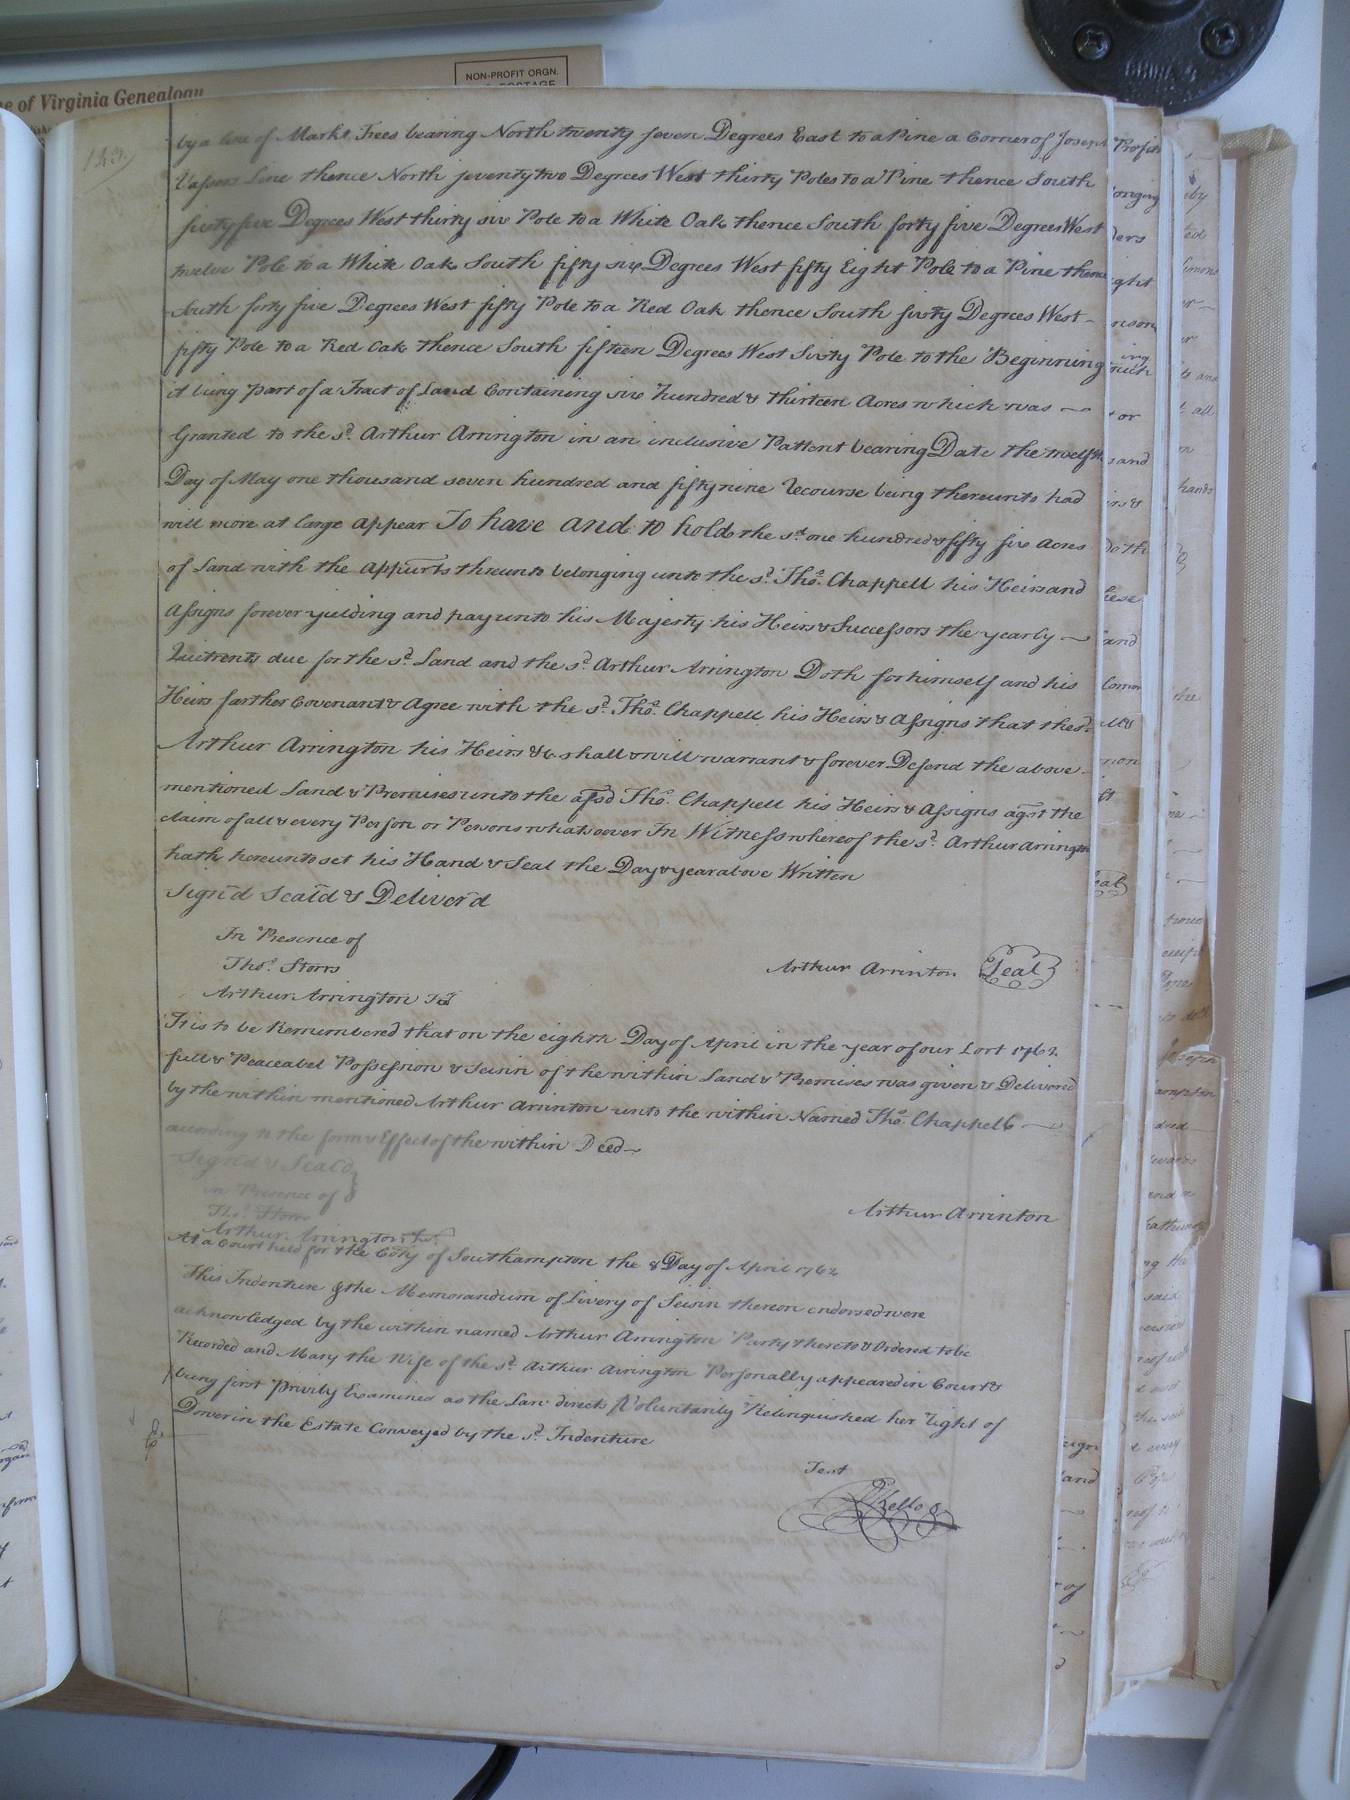 NON-PROFIT ORGN.
of Virginia Genealogy
by a line of Markt Trees bearing North twenty seven Degrees East to a Pine a Corner of Joseph
Vassers Line thence North seventy two Degrees West thirty Poles to a Pine thence South
sixty five Degrees West thirty six Pole to a White Oak thence South forty five Degrees West
twelve Pole to a White Oak South fifty six Degrees West fifty Eight Pole to a Pine thence
South forty five Degrees West fifty Pole to a Red Oak thence South sixty Degrees West
fifty Pole to a Red Oak thence South fifteen Degrees West Sixty Pole to the Beginning
it being part of a Tract of Land Containing six hundred & thirteen Acres which was
Granted to the sd. Arthur Arrington in an inclusive Pattent bearing Date the twelfth
Day of May one thousand seven hundred and fifty nine Recourse being thereunto had
will more at large appear To have and to hold the sd one hundred & fifty six Acres
of Land with the Appurts thereunto belonging unto the sd. Thos. Chappell his Heirs and
Assigns forever yielding and pay unto his Majesty his Heirs & Successors the yearly
Quitrents due for the sd. Land and the sd. Arthur Arrington Doth for himself and his
Heirs farther Covenant & Agree with the sd. Thos. Chappell his Heirs & Assigns that the sd.
Arthur Arrington his Heirs &c shall & will warrant & forever Defend the above
mentioned Land & Premises unto the afsd Thos. Chappell his Heirs & Assigns agst the
claim of all & every Person or Persons whatsoever In Witness whereof the sd. Arthur Arrington
hath hereunto set his Hand & Seal the Day & year above Written
Sign'd Seal'd & Deliver'd
In Presence of
Thos. Storrs
Arthur Arrinton Seal
Arthur Arrington Jr
It is to be Remembered that on the eighth Day of April in the year of our Lort 1762
full & Peaceabel Possession & Seisin of the within Land & Premises was given & Delivered
by the within mentioned Arthur Arrinton unto the within Named Thos. Chappell
according to the form & Effect of the within Deed
Sign'd & Seal'd
in Presence of
Thos. Storrs
Arthur Arrinton
Arthur Arrington Jr.
At a Court held for the Coty of Southampton the 8 Day of April 1762
This Indenture & the Memorandum of Livery of Seisin thereon endorsed were
acknowledged by the within named Arthur Arrington Party thereto & Ordered to be
Recorded and Mary the Wife of the sd. Arthur Arrington Personally appeared in Court &
being first Privily Examined as the Law directs Voluntarily Relinquished her Right of
Dower in the Estate Conveyed by the sd. Indenture
Test